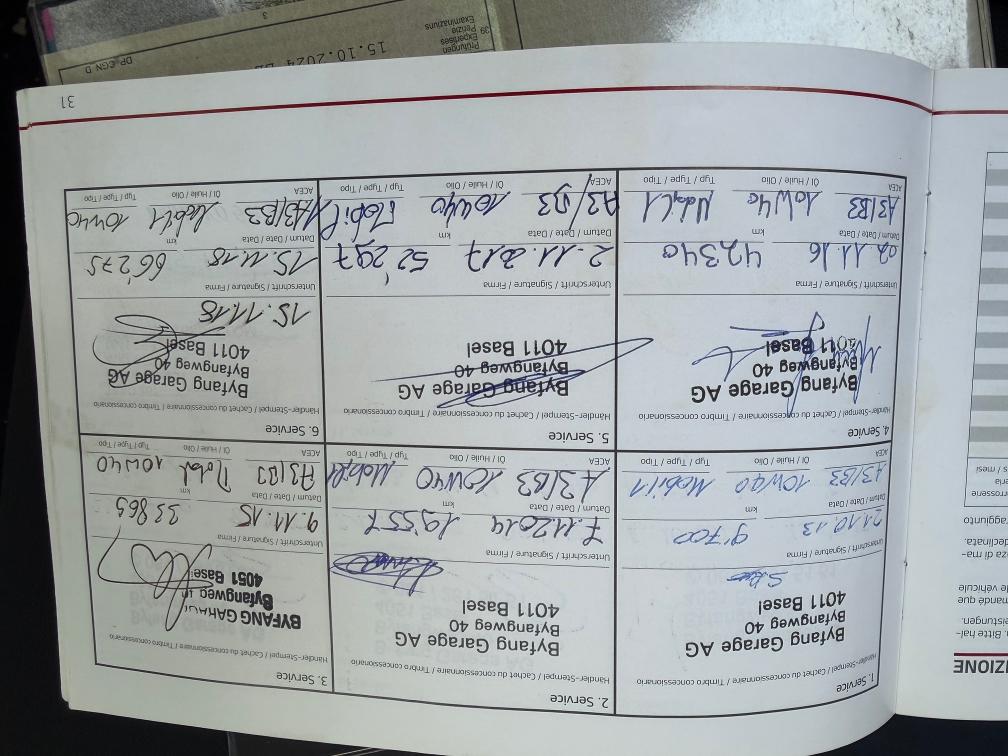 1. Service
Händler-Stempel / Cachet du concessionnaire / Timbro concessionario
Byfang Garage AG
Byfangweg 40
4011 Basel
Unterschrift / Signature / Firma
21.10.13 9'700
Datum / Date / Data km
A3/B3 10W40 Mobil 1
ACEA Öl / Huile / Olio Typ / Type / Tipo
2. Service
Händler-Stempel / Cachet du concessionnaire / Timbro concessionario
Byfang Garage AG
Byfangweg 40
4011 Basel
Unterschrift / Signature / Firma
7.11.2014 19'557
Datum / Date / Data km
A3/B3 10W40 Mobil
ACEA Öl / Huile / Olio Typ / Type / Tipo
3. Service
Händler-Stempel / Cachet du concessionnaire / Timbro concessionario
BYFANG GARAGE
Byfangweg
4051 Basel
Unterschrift / Signature / Firma
9.11.15 33865
Datum / Date / Data km
A3/B3 10W40
ACEA Öl / Huile / Olio Typ / Type / Tipo
4. Service
Händler-Stempel / Cachet du concessionnaire / Timbro concessionario
Byfang Garage AG
Byfangweg 40
4011 Basel
Unterschrift / Signature / Firma
02.11.16 42340
Datum / Date / Data km
A3/B3 10W40 Mobil 1
ACEA Öl / Huile / Olio Typ / Type / Tipo
5. Service
Händler-Stempel / Cachet du concessionnaire / Timbro concessionario
Byfang Garage AG
Byfangweg 40
4011 Basel
Unterschrift / Signature / Firma
2.11.2017 52'297
Datum / Date / Data km
A3/B3 10W40 Mobil 1
ACEA Öl / Huile / Olio Typ / Type / Tipo
6. Service
Händler-Stempel / Cachet du concessionnaire / Timbro concessionario
Byfang Garage AG
Byfangweg 40
4011 Basel
15.11.18
Unterschrift / Signature / Firma
15.11.18 66'275
Datum / Date / Data km
A3/B3 Mobil 1 10W40
ACEA Öl / Huile / Olio Typ / Type / Tipo
31
IZIONE
Bitte hal-
eistungen.
mande que
le véhicule
za di ma-
declinata.
raggiunto
rrosserie
eria
s / mesi
39 Prüfungen
Expertises
Perizie
Examinaziuns
15.10.2024
3